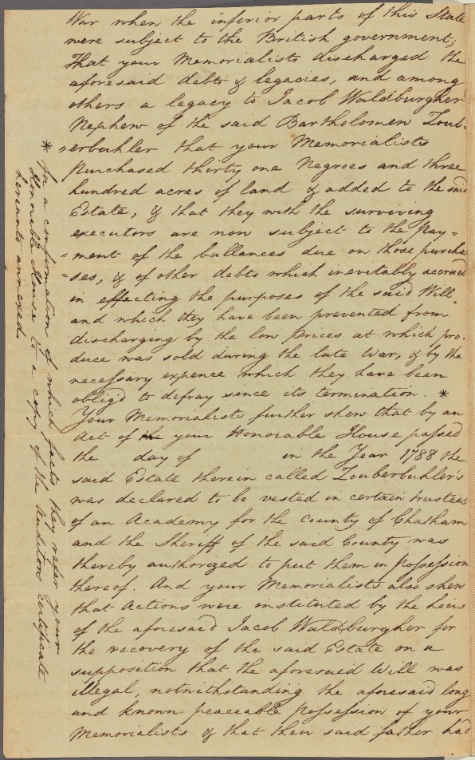 War when the inferior parts of this State
were subject to the British government;
That your Memorialists discharged the
aforesaid debts & legacies, and among
others a legacy to Jacob Waldburgher
Nephew of the said Bartholomew Zoub-
erbuhler that your Memorialists
purchased thirty one Negroes and three
hundred acres of land & added to the said
Estate, & that they with the surviving
executors are now subject to the Pay-
-ment of the ballances due on those purcha
-ses, & of other debts which inevitably accrued
in effecting the purposes of the said Will
and which they have been prevented from
discharging by the low prices at which pro-
duce was sold during the late War, & by the
necessary expence which they have been
obligd to defray since its termination. *
Your Memorialists further shew that by an
Act of the your Honorable House passed
the day of in the Year 1788 the
said Estate therein called Zouberbuhler's
was declared to be vested in certain trustees
of an Academy for the County of Chatham
and the Sheriff of the said County was
thereby authorized to put them in possession
thereof. And your Memorialists also shew
that Actions were instituted by the heirs
of the aforesaid Jacob Waldburgher for
the recovery of the said Estate on a
supposition that the aforesaid Will was
illegal, notwithstanding the aforesaid long
and known peaceable possession of your
Memorialists & that their said father had
* In a confirmation of which facts they refer your
Honorable House to a copy of the Auditors certificate
hereunto annexed.